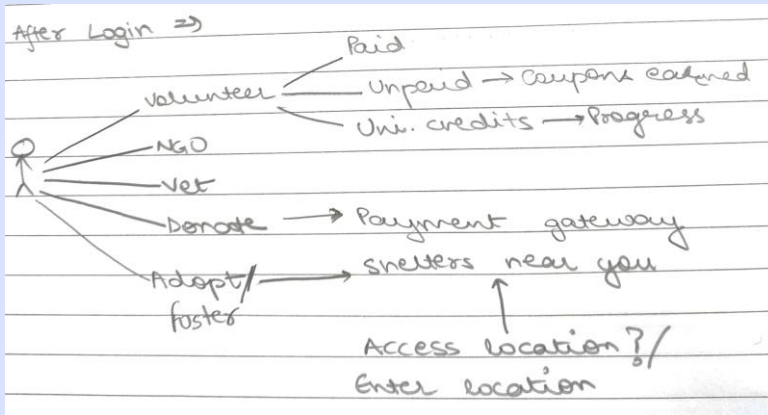 After Login ⇒
Paid
Volunteer
Unpaid → Coupons earned
Uni. credits → Progress
NGO
Vet
Donate → Payment gateway
Adopt/ → shelters near you
foster
Access location?/
Enter location